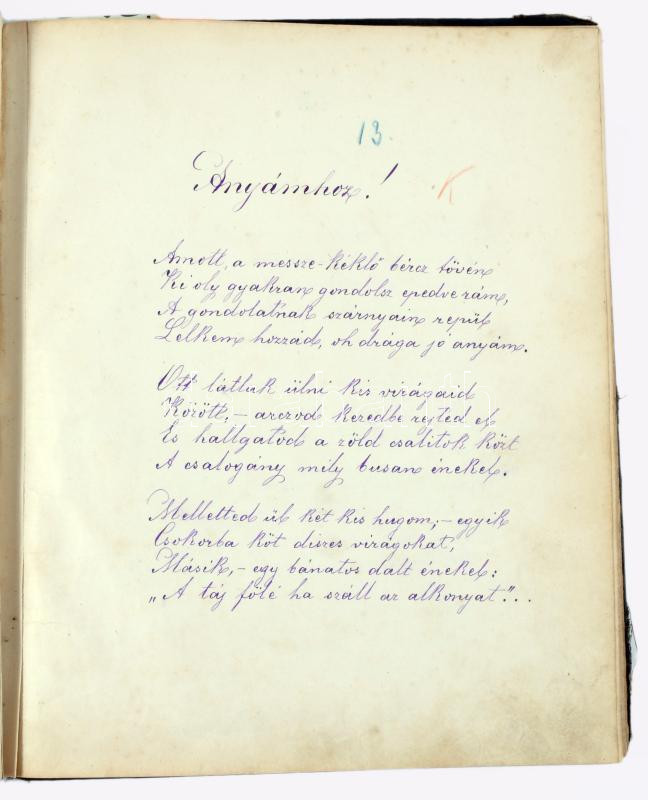 13.
Anyámhoz!
K
Amott, a messze-kéklő bércz tövén
Ki oly gyakran gondolsz epedve rám,
A gondolatnak szárnyain repül
Lelkem hozzád, oh drága jó anyám.
Ott látlak ülni kis virágaid
Között; – arczod kezedbe rejted el
És hallgatod a zöld csalitok közt
A csalogány mily busan énekel.
Melletted ül két kis hugom; – egyik
Csokorba köt díszes virágokat,
Másik, – egy bánatos dalt énekel:
„A táj fölé ha száll az alkonyat"...